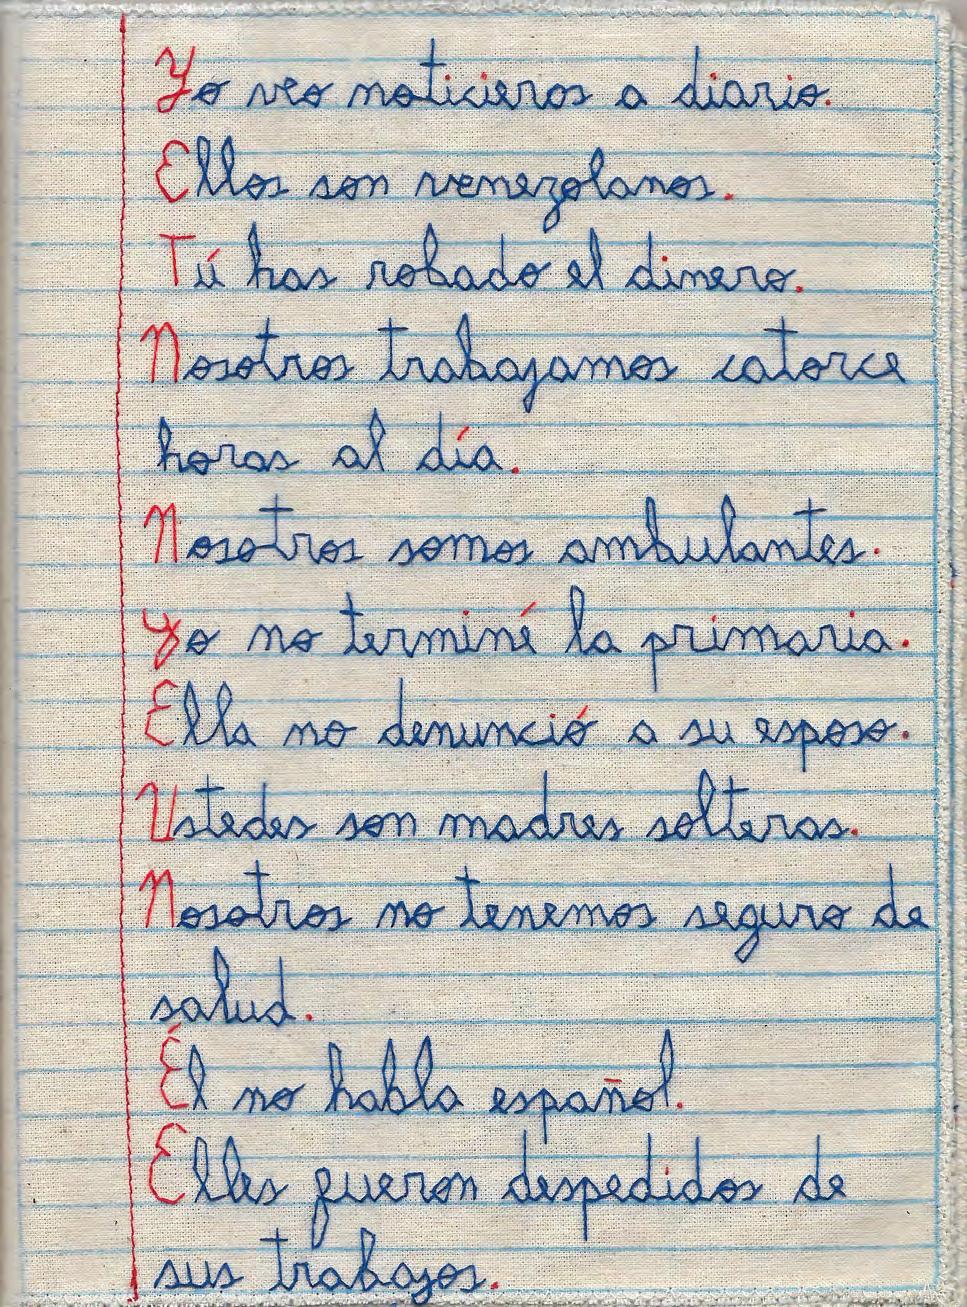 Yo veo noticieros a diario.
Ellos son venezolanos.
Tú has robado el dinero.
Nosotros trabajamos catorce
horas al día.
Nosotros somos ambulantes.
Yo no terminé la primaria.
Ella no denunció a su esposo.
Ustedes son madres solteras.
Nosotros no tenemos seguro de
salud.
Él no habla español.
Elles fueron despedidos de
sus trabajos.